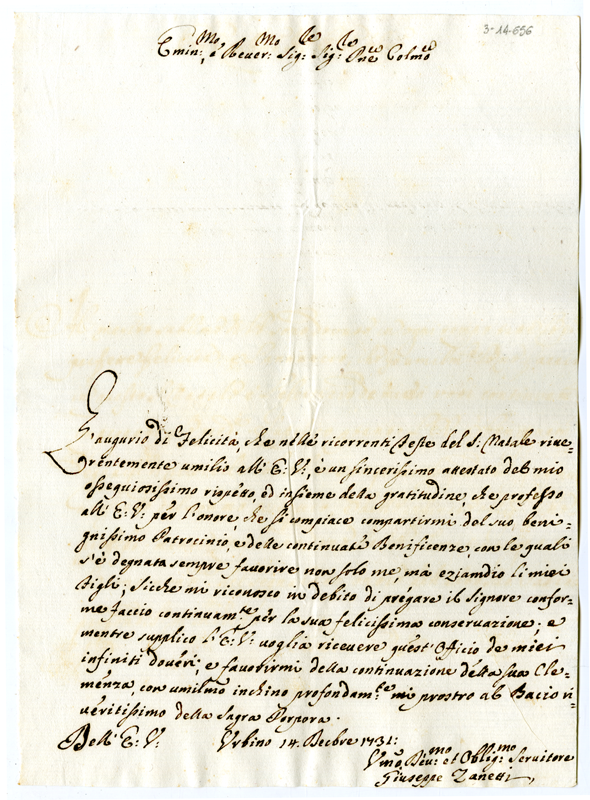 3-14-656
Emin:mo, e Rever:mo Sig:re Sig:re Pne Colmo
L'augurio di Felicità, che nelle ricorrenti Feste del S: Natale rive=
rentemente umilio all' E: V:, è un sincerissimo attestato del mio
ossequiosissimo rispetto, ed insieme della gratitudine, che professo
all' E: V: per l'onore che si compiace compartirmi del suo beni=
gnissimo Patrocinio, e delle continuate Benificenze, con le quali
s'è degnata sempre favorire non solo me, mà eziandio li miei
Figli; Sicche mi riconosco in debito di pregare il Signore confor=
me faccio continuam:te per la sua felicissima conservazione; e
mentre supplico l'E: V: voglia ricevere quest' Oficio de miei
infiniti doveri, e favorirmi della continuazione della sua Cle=
menza, con umilmo inchino profondam:te mi prostro al Bacio ri=
veritissimo della Sagra Porpora.
Dell' E: V: Urbino 14. Decbre 1731:
Vmo, Dev:mo et Oblig:mo Servitore
Giuseppe Zanetti